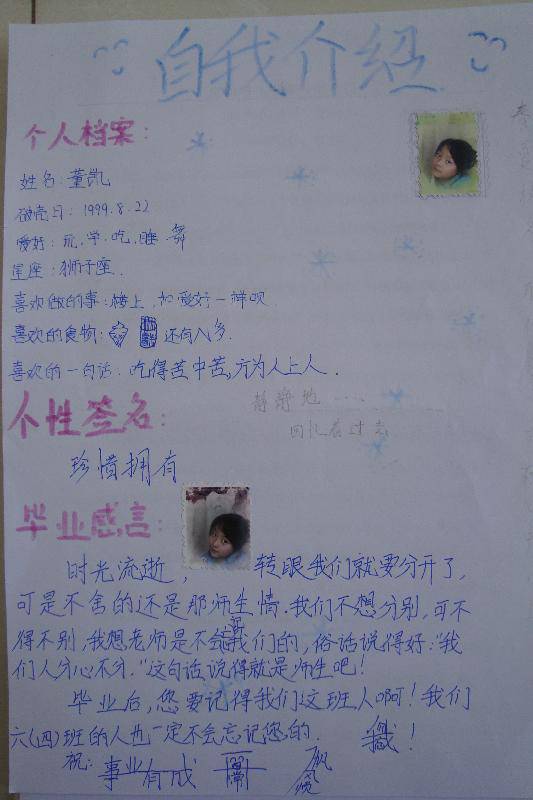 自我介绍
个人档案:
姓名:董凯
破壳日:1999.8.22
爱好:玩.学.吃.睡.舞
星座:狮子座.
喜欢做的事:楼上.如爱好一样呗
喜欢的食物: 还有入多.
喜欢的一句话:吃得苦中苦,方为人上人.
静静地……
回忆着过去
个性签名:
珍惜拥有
毕业感言:
时光流逝, 转眼我们就要分开了,
可是不舍的还是那师生情.我们不想分别,可不
得不别,我想老师是不会忘我们的,俗话说得好:"我
们人分心不分."这句话说得就是师生吧!
毕业后,您要记得我们这班人啊!我们
六(四)班的人也一定不会忘记您的.
祝: 事业有成